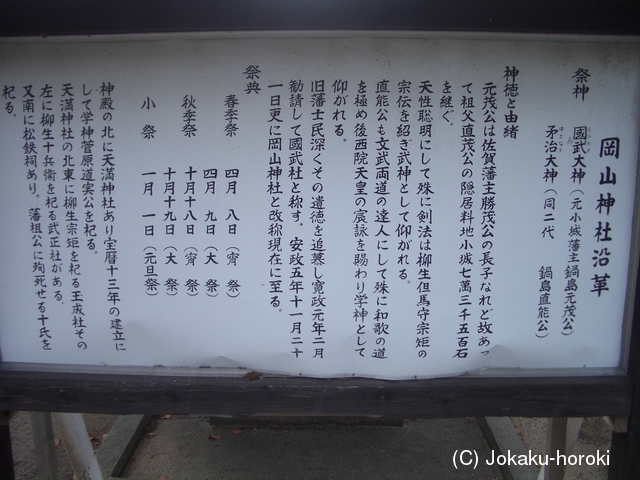 岡山神社沿革
祭神
國武大神（元小城藩主鍋島元茂公）
矛治大神（同二代 鍋島直能公）
神徳と由緒
元茂公は佐賀藩主勝茂公の長子なれど故あっ
て祖父直茂公の隠居料地小城七萬三千五百石
を継ぐ。
天性聡明にして殊に剣法は柳生但馬守宗矩の
宗伝を紹ぎ武神として仰がれる。
直能公も文武両道の達人にして殊に和歌の道
を極め後西院天皇の宸詠を賜わり学神として
仰がれる。
旧藩士民深くその遺徳を追慕し寛政元年二月
勧請して國武社と称す。安政五年十一月二十
一日更に岡山神社と改称現在に至る。
祭典
春季祭 四月 八日（宵 祭）
四月 九日（大 祭）
秋季祭 十月十八日（宵 祭）
十月十九日（大 祭）
小 祭 一月 一日（元旦祭）
神殿の北に天満神社あり宝暦十三年の建立に
して学神菅原道実公を祀る。
天満神社の北東に柳生宗矩を祀る玉成社その
左に柳生十兵衛を祀る武正社がある。
又南に松鉄祠あり。藩祖公に殉死せる十氏を
祀る。
(C) Jokaku-horoki